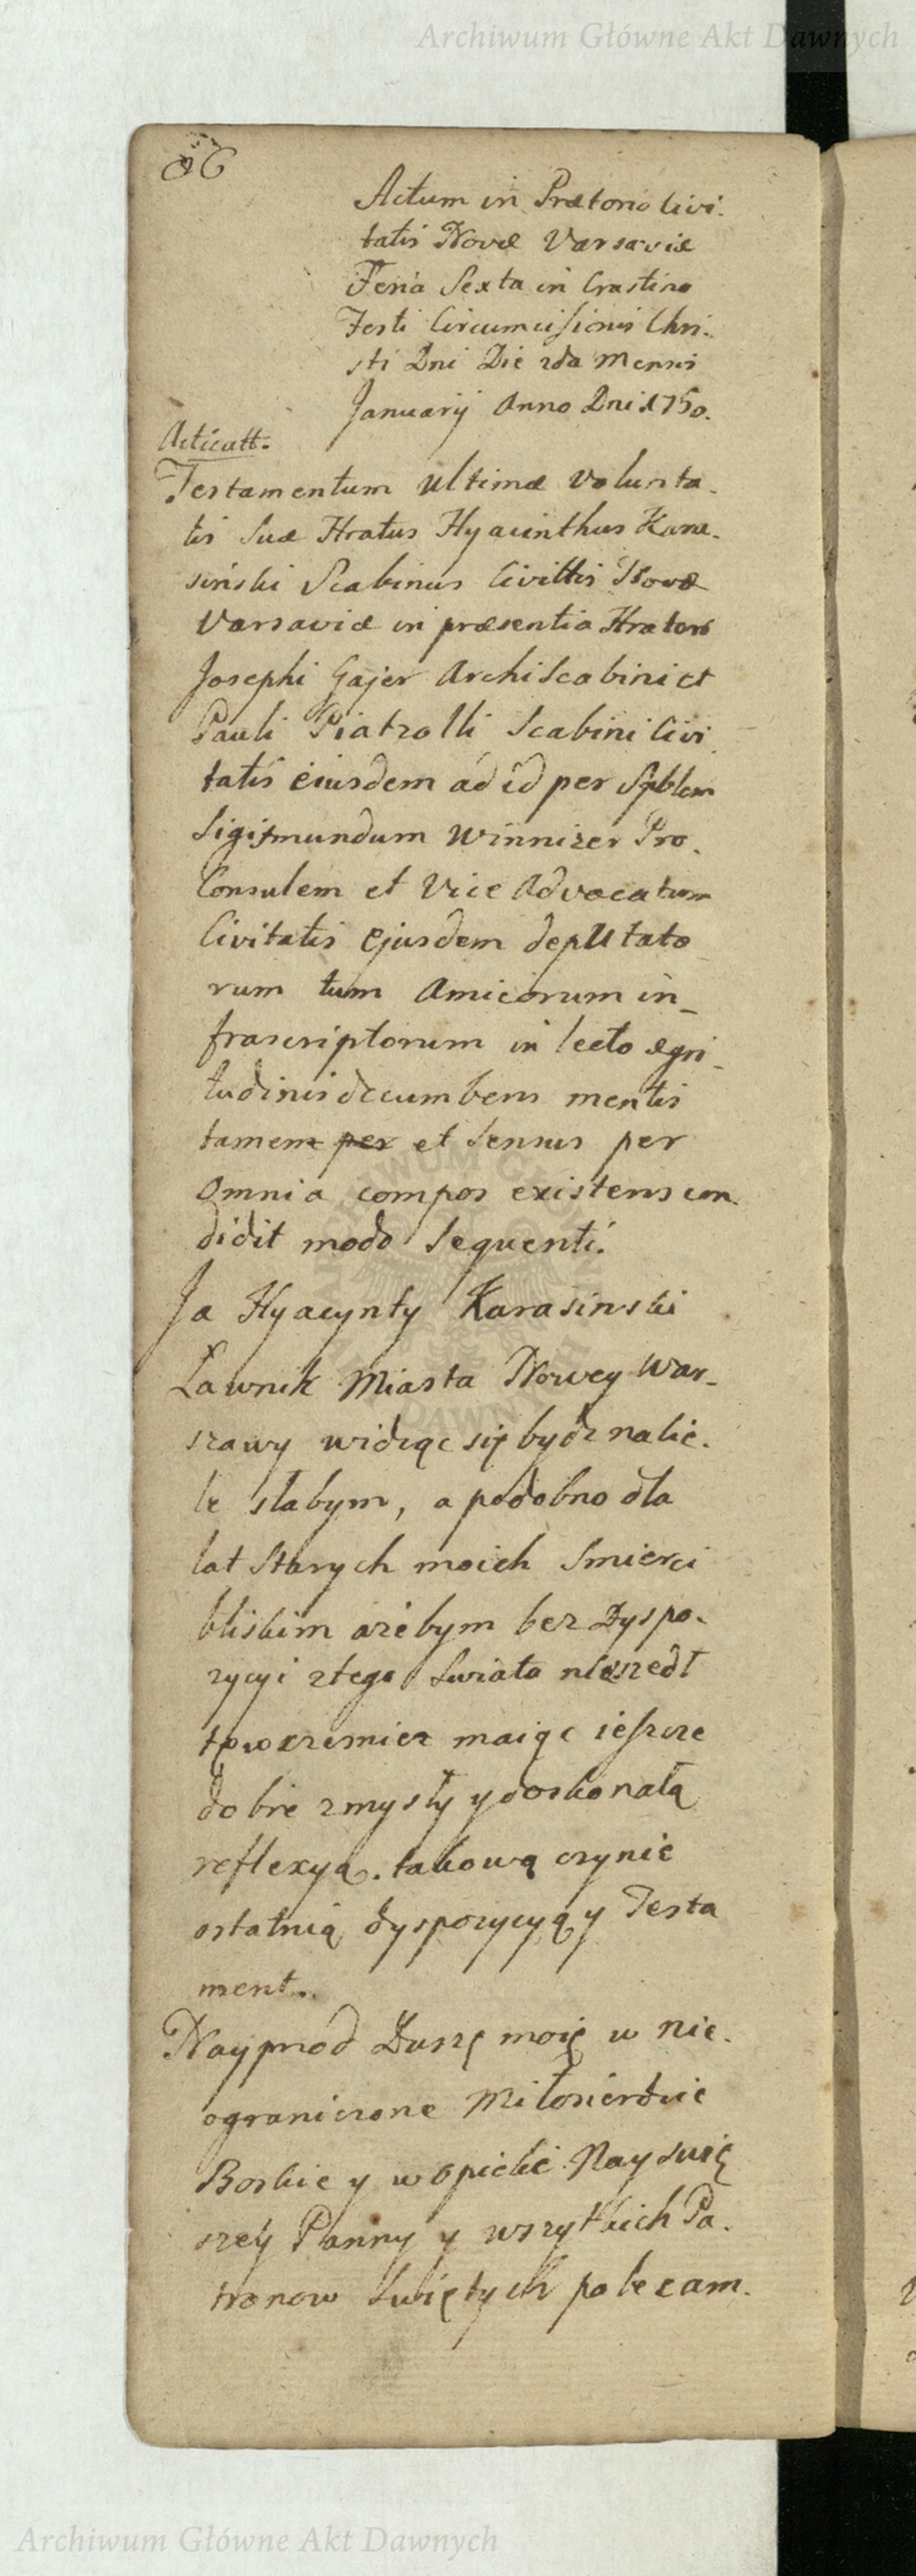 Archiwum Główne Akt Dawnych
86
Actum in Prætorio Civi-
tatis Novæ Varsaviæ
Feria Sexta in Crastino
Festi Circumcisionis Chri-
sti Dni Die 2da Mensis
Januarij Anno Dni 1750.
Acticatt.
Testamentum Ultimæ volunta-
tis Suæ Hratus Hyacinthus Kara-
siński Scabinus Civittis Novæ
Varsaviæ in præsentia Hrator
Josephi Gajer ArchiScabini et
Pauli Piatrolli Scabini Civi
tatis eiusdem ad id per Spblem
Sigismundum Winnizer Pro-
Consulem et Vice Advocatum
Civitatis Ejusdem depUtato
rum tum Amicorum in-
frascriptorum in lecto ægri-
tudinis decumbens mentis
tamem per et Sensus per
Omnia compos existens con-
didit modo Sequenti.
Ja Hyacynty Karasinski
Ławnik Miasta Nowey War-
szawy widząc się bydz na lic-
le słabym, a podobno dla
lat Starych moich Smierci
bliskim ażebym bez Dyspo-
zycyi ztego Swiata nieszedł
maiąc ieszcze
dobre zmysły y doskonałą
reflexyą. takową czynie
ostatnią dyspozycyą y Testa
ment.
Nayprzod Duszę moię w nie-
ograniczone Miłosierdzie
Boskie y w Opiekę Nayswię
szey Panny y wszytkich Pa-
tronow Swiętych polecam.
Archiwum Główne Akt Dawnych